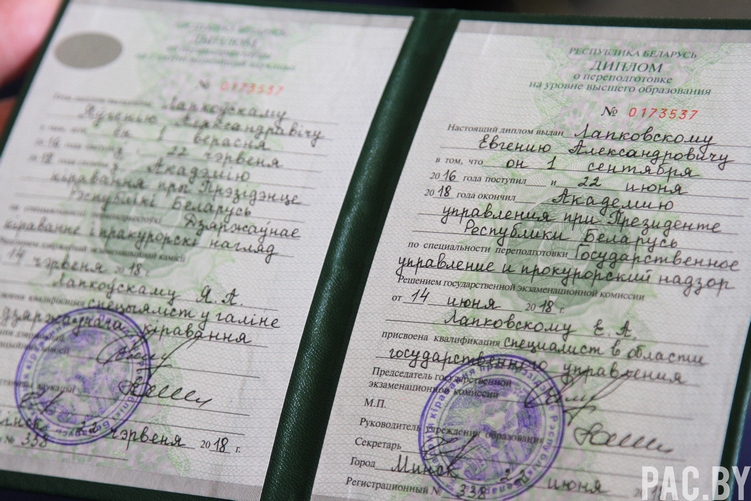 № 0173537
Лапкоўскаму
Яўгенію Аляксандравічу
ён 1 верасня
22 чэрвеня
Акадэмію
кіравання пры Прэзідэнце
Рэспублікі Беларусь
Дзяржаўнае
кіраванне і пракурорскі нагляд
14 чэрвеня 2018 г.
Лапкоўскаму Я. А.
спецыяліст у галіне
дзяржаўнага кіравання
22 чэрвеня 2018 г.
№ 335
РЕСПУБЛИКА БЕЛАРУСЬ
ДИПЛОМ
о переподготовке
на уровне высшего образования
№ 0173537
Настоящий диплом выдан Лапковскому
Евгению Александровичу
в том, что он 1 сентября
2016 года поступил и 22 июня
2018 года окончил Академию
управления при Президенте
Республики Беларусь
по специальности переподготовки Государственное
управление и прокурорский надзор
Решением государственной экзаменационной комиссии
от 14 июня 2018 г.
Лапковскому Е. А.
присвоена квалификация специалист в области
государственного управления
Председатель государственной
экзаменационной комиссии
М.П.
Руководитель учреждения образования
Секретарь
Город Минск 22 июня
Регистрационный № 335
PAC.BY